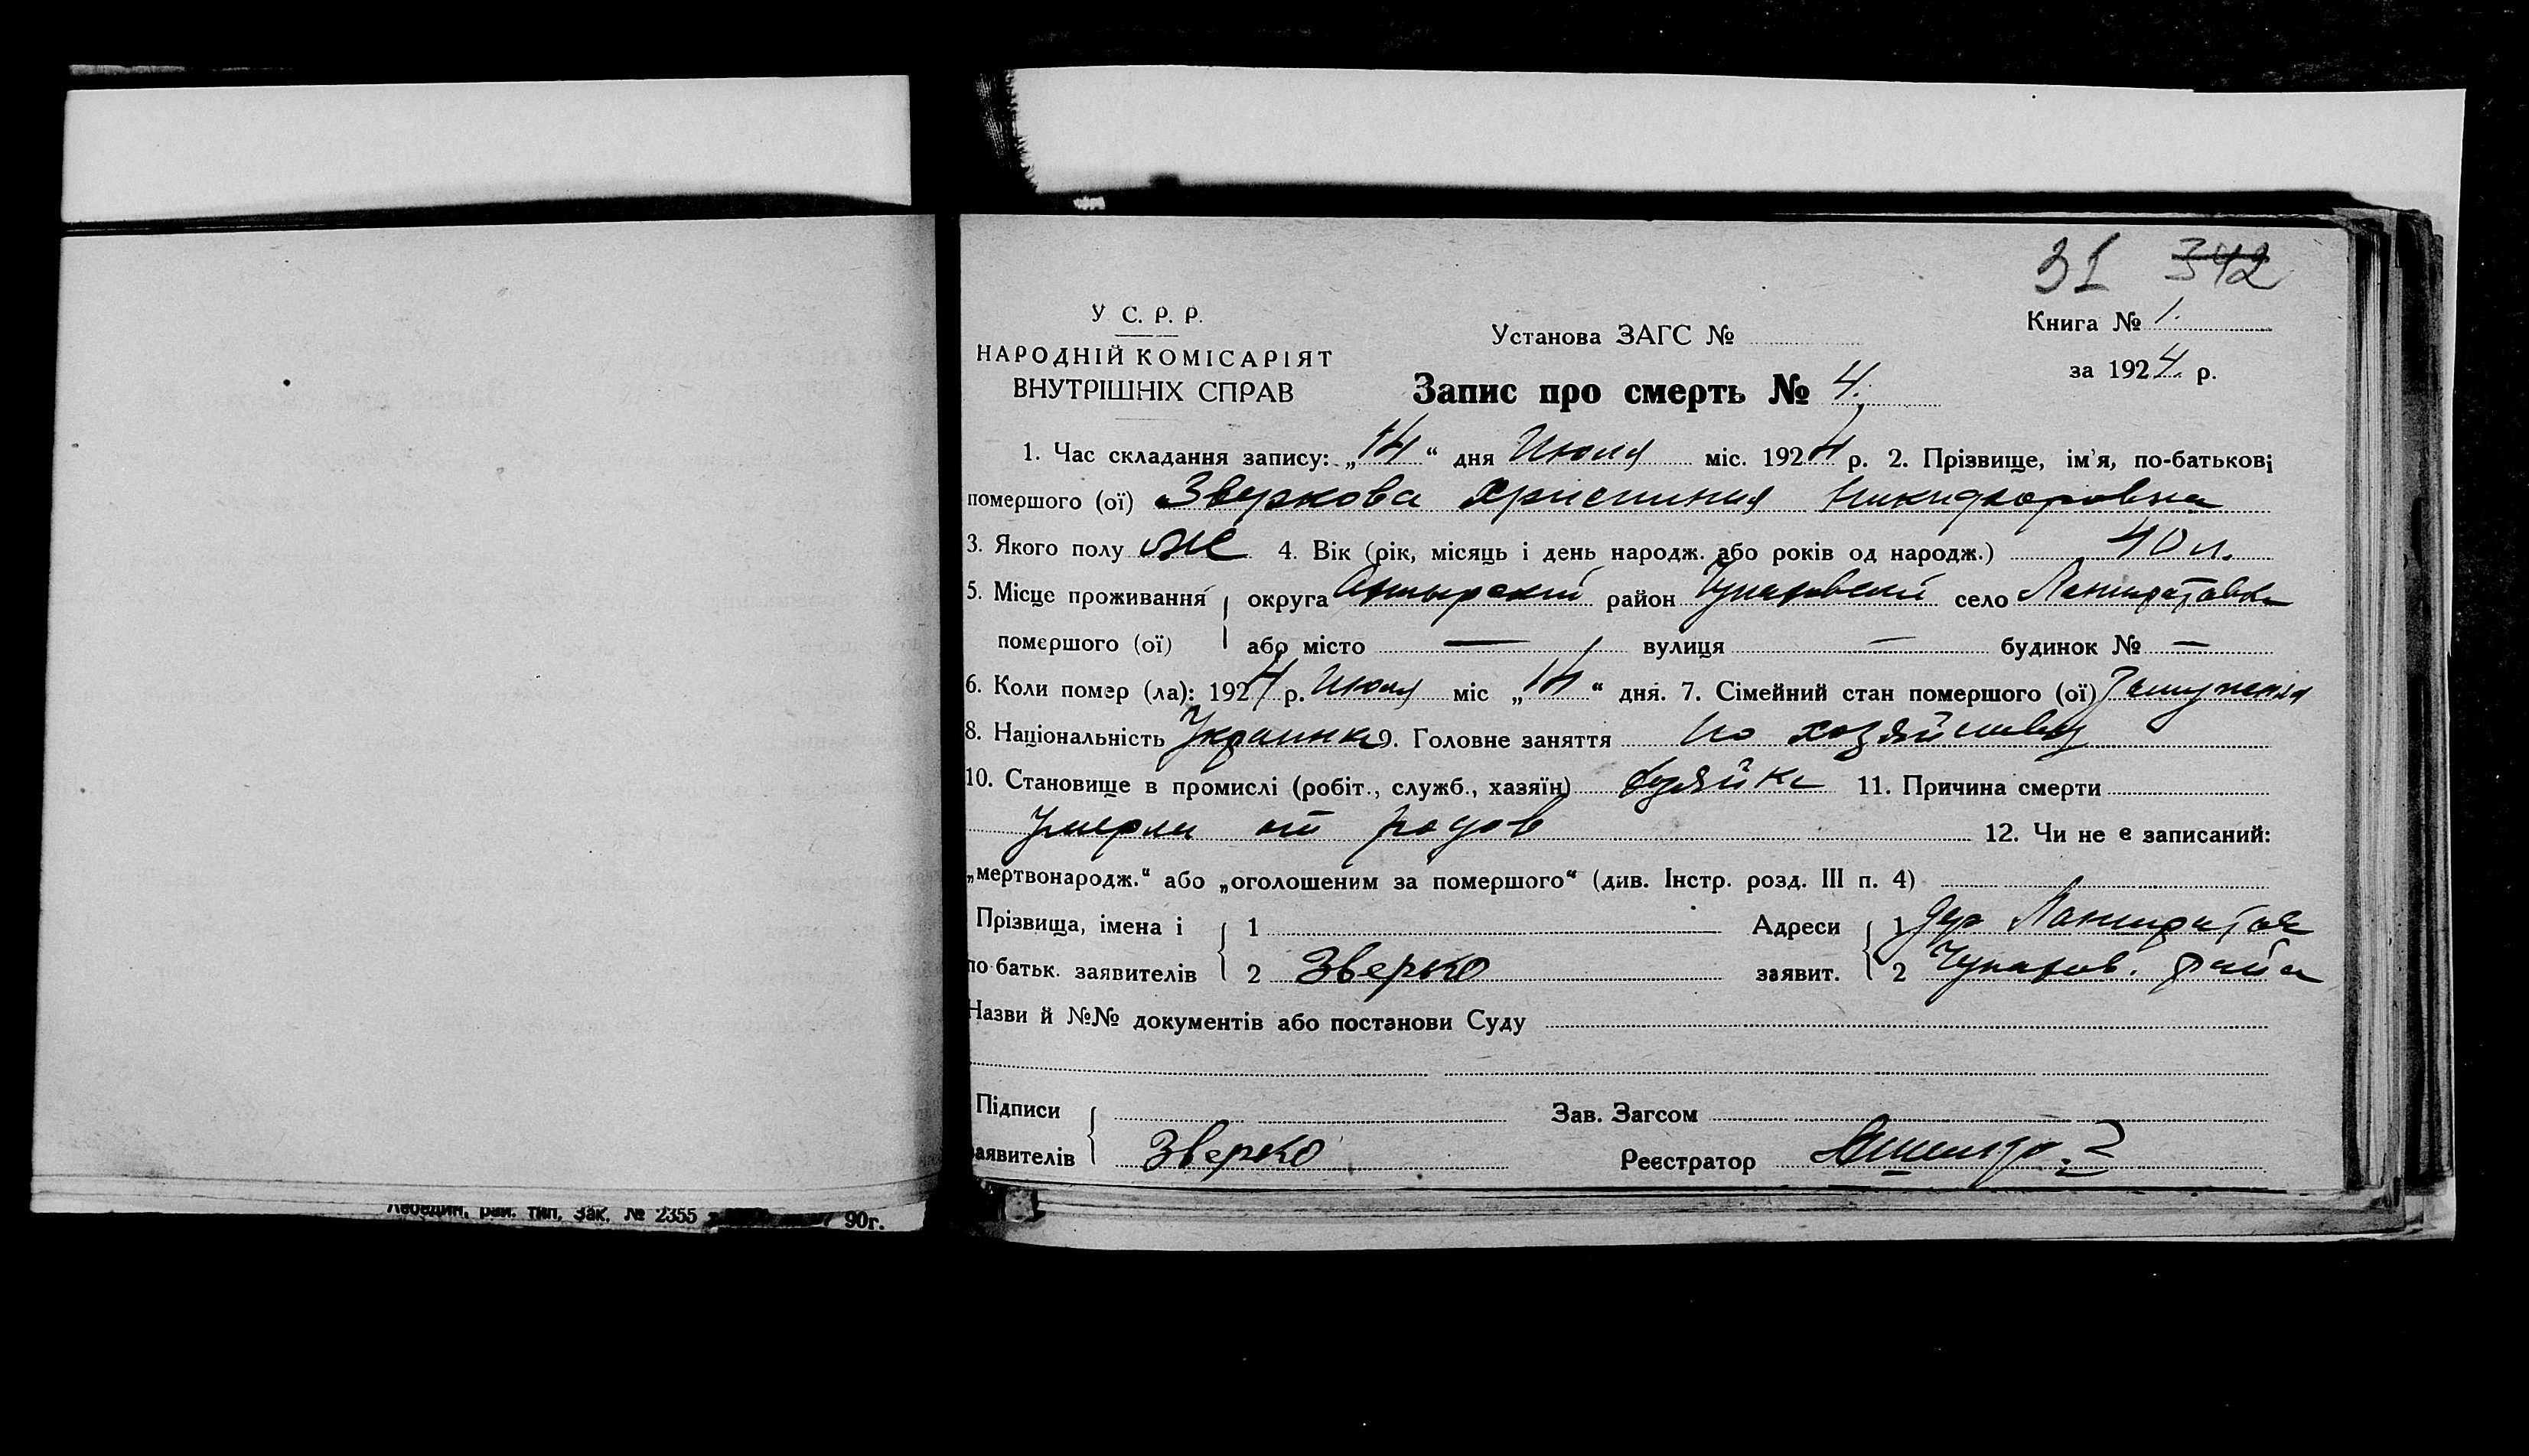 31 342
У С. Р. Р.
НАРОДНІЙ КОМІСАРІЯТ
ВНУТРІШНІХ СПРАВ
Установа ЗАГС №
Книга № 1.
за 1924 р.
Запис про смерть № 4.
1. Час складання запису: „14“ дня Июля міс. 1924 р. 2. Прізвище, ім'я, по-батькові
помершого (ої) Зверкова Христиния Никифоровна
3. Якого полу ж 4. Вік (рік, місяць і день народж. або років од народж.) 40 л.
5. Місце проживання округа Ахтырский район Чупаховский село
помершого (ої) або місто — вулиця — будинок № —
6. Коли помер (ла): 1924 р. Июля міс „14“ дня. 7. Сімейний стан помершого (ої) Замужняя
8. Національність Украинка 9. Головне заняття по хозяйству
10. Становище в промислі (робіт., служб., хазяїн) хозяйка 11. Причина смерти
умерла от родов 12. Чи не є записаний:
„мертвонародж.“ або „оголошеним за помершого“ (див. Інстр. розд. III п. 4)
Прізвища, імена і 1 Адреси 1 дер
по-батьк. заявителів 2 Зверко заявит. 2 Чупахов. райо
Назви й №№ документів або постанови Суду
Підписи Зав. Загсом
аявителів Зверко Реєстратор
Лебедин, рай. тип. Зак. № 2355 90г.